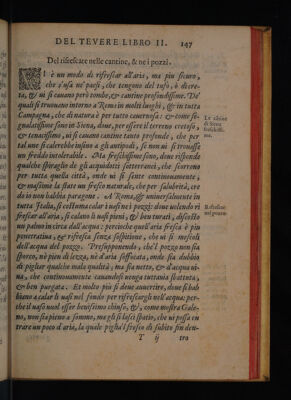 DEL TEVERE LIBRO II. 147
Del rifrescare nelle cantine, & ne i pozzi.
VI è un modo di rifrescar all'aria, ma piu sicuro,
che s'usa ne' paesi, che tengono del tufo, è di creta,
& ui si cauano però condu, & cantine profondissime. De'
quali si truouano intorno a Roma in molti luoghi, & in tutta
Campagna, che di natura è per tutto cauernosa: & come segnalatissime
sono in Siena, doue, per essere il terreno cretoso,
e tenacissimo, si cauano cantine tanto profonde, che per
tal'une si calarebbe infino a gli antipodi, se non ui si trouasse
un freddo intolerabile. Ma freschissime sono, doue risponde
qualche spiraglio de gli acquidotti sotterranei, che scorrono
per tutta quella città, onde ui si sente continouamente,
e massime la state un fresco naturale, che per salubrità, credo
io non habbia paragone. A Roma, & uniuersalmente in
tutta Italia, si costuma calar i uasi ne i pozzi: doue uolendo ri
frescar all'aria, si calano li uasi pieni, & ben turati, discosto
un palmo in circa dall'acqua: percioche quell'aria fresca è piu
penetratiua, & rifresca senza sospitione, che ui si mescoli
dell'acqua del pozzo. Presupponendo, che'l pozzo non sia
sporco, nè pien di lezzo, nè d'aria soffocato, onde sia dubbio
di pigliar qualche mala qualità, ma sia netto, & d'acqua uiua,
che continouamente cauandosi uenga tuttauia sbattuta,
& ben purgata. Et molto piu si deue auuertire, doue si habbiano
a calar li uasi nel fondo per rifrescargli nell'acqua: perche
il uaso uuol esser benissimo chiuso, &, come mostra Galeno,
non sia pieno a sommo, ma gli si lasci spatio, che ui possa en
trare un poco d'aria, la quale piglia'l fresco di subito fin den-
T ij tro
Le cātine
di Siena
freschissime.
Rifrescare
nel pozzo.